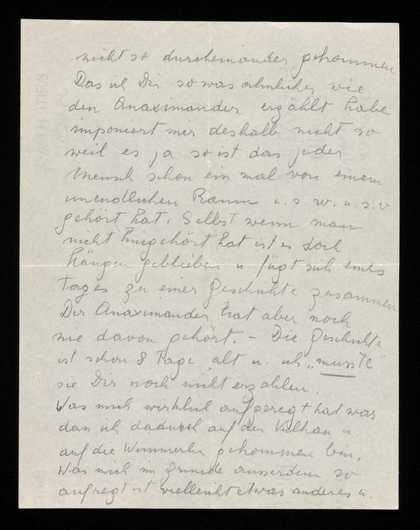 nicht so durcheinander gekommen
Das ich Dir so was ähnliches wie
den Anaximander erzählt habe
imponiert mir deshalb nicht so
weil es ja so ist das jeder
Mensch schon ein mal von einem
unendlichen Raum u. s. w. u. s. v
gehört hat. Selbst wenn man
nicht hingehört hat ist es doch
hängen geblieben u fügt sich eines
tages zu einer Geschichte zusammen
Der Anaximander hat aber noch
nie davon gehört. – Die Geschichte
ist schon 8 Tage alt u. ich „musste"
sie Dir noch nicht erzählen.
Was mich wirklich aufgeregt hat war
dan ich dadurch auf den
auf die gekommen bin.
Was mich im grunde ausserdem so
aufregt ist vielleicht etwas anderes u.